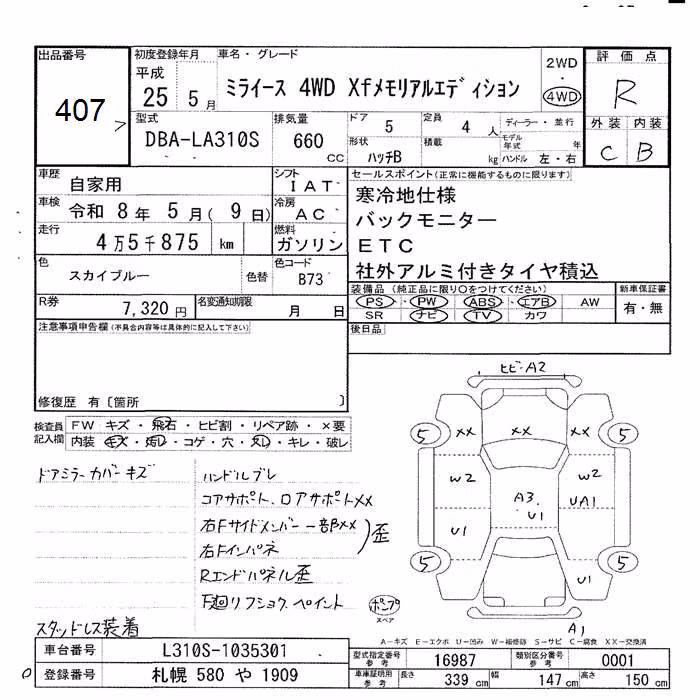 出品番号
407
初度登録年月
平成
25 5月
車名・グレード
ミライース 4WD Xfメモリアルエディション
2WD
・
4WD
評価点
R
外装 内装
C B
型式
DBA-LA310S
排気量
660 CC
ドア 5
定員 4 人
ディーラー・並行
形状 ハッチB
積載 kg
モデル年式 年
ハンドル 左・右
車歴 自家用
シフト IAT
車検 令和 8年 5月( 9日)
冷房 AC
走行 4万5千875 km
燃料 ガソリン
色 スカイブルー 色替
色コード B73
R券 7,320円
名変通知期限 月 日
セールスポイント(正常に機能するものに限ります)
寒冷地仕様
バックモニター
ETC
社外アルミ付きタイヤ積込
装備品 (純正品に限り○をつけてください)
PS・PW・ABS・エアB AW
SR ナビ TV カワ
新車保証書
有・無
後日品
注意事項申告欄(不具合内容等は具体的に記入して下さい)
修復歴 有〔箇所 〕
検査員記入欄
FW キズ・飛石・ヒビ割・リペア跡・×要
内装 キズ・汚レ・コゲ・穴・スレ・キレ・破レ
ドアミラーカバーキズ
ハンドルブレ
コアサポート、ロアサポートXX
右Fサイドメンバー一部XX
右Fインパネ
歪
Rエンドパネル歪
下廻リフショク ペイント
スタッドレス装着
ヒビ・A2
5 XX XX XX 5
W2 W2
A3 UA1
U1 U1
5 5
U1
ポンプ
スペア
A1
A-キズ E-エクボ U-凹み W-補修跡 S-サビ C-腐食 XX-交換済
車台番号 L310S-1035301
登録番号 札幌 580 や 1909
型式指定番号 参考 16987
類別区分番号 参考 0001
車庫証明用 参考 長さ 339 cm 幅 147 cm 高さ 150 cm